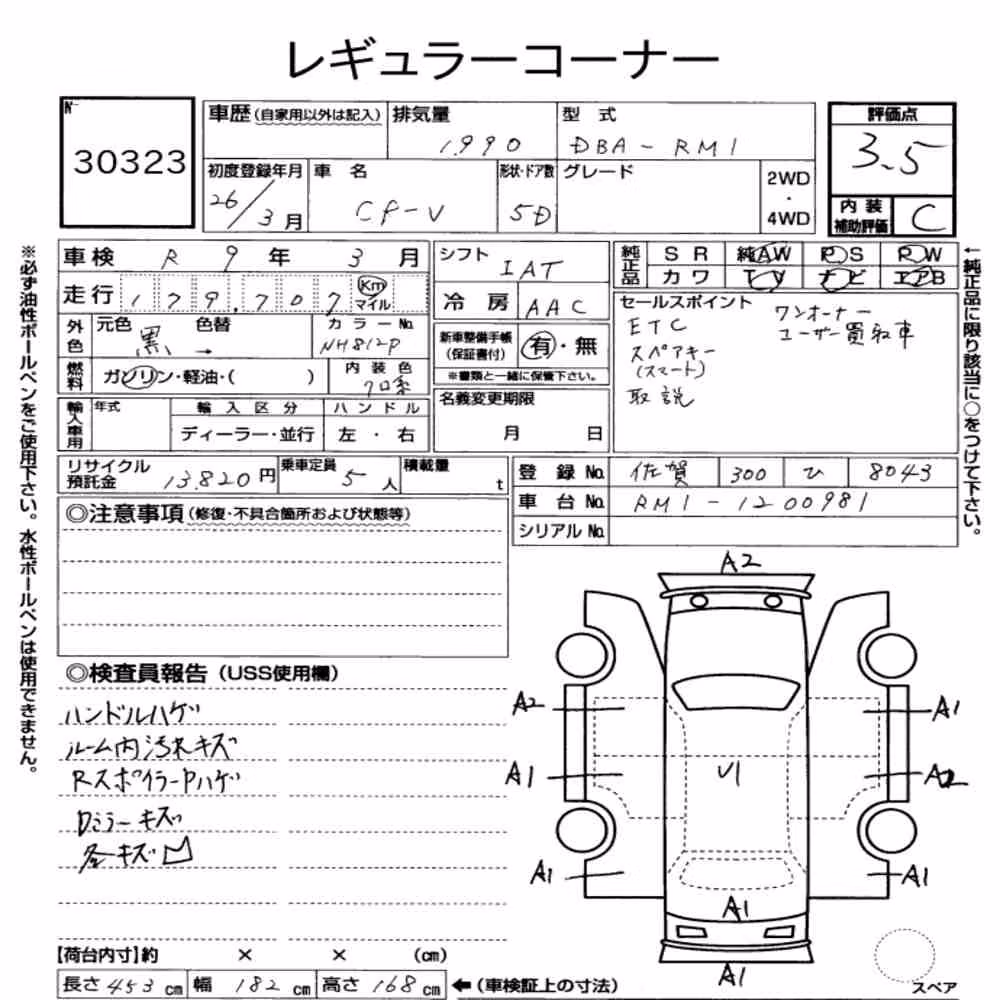 レギュラーコーナー
№
30323
車歴(自家用以外は記入)
排気量
1,990
型式
DBA-RM1
評価点
3.5
初度登録年月
26/3月
車名
CR-V
形状・ドア数
5D
グレード
2WD
・
4WD
内装
補助評価
C
車検 R 9年 3月
シフト
IAT
純正品
SR 純AW PS PW
カワ TV ナビ エアB
走行 179,707 Km マイル
冷房
AAC
外色
元色
黒
色替
→
カラーNo.
NH812P
新車整備手帳
(保証書付)
有・無
※書類と一緒に保管下さい。
セールスポイント
ETC
スペアキー
(スマート)
取説
ワンオーナー
ユーザー買取車
燃料
ガソリン・軽油・( )
内装色
クロ系
名義変更期限
月 日
輸入車用
年式
輸入区分
ハンドル
ディーラー・並行
左・右
リサイクル
預託金
13,820円
乗車定員
5人
積載量
t
登録No.
佐賀 300 ひ 8043
車台No.
RM1-1200981
シリアルNo.
◎注意事項(修復・不具合箇所および状態等)
◎検査員報告(USS使用欄)
ハンドルハゲ
ルーム内汚れキズ
RスポイラーPハゲ
Dミラーキズ
各キズ凹
A2
A2
A1
A1
U1
A2
A1
A1
A1
A1
スペア
【荷台内寸】約 × × (cm)
長さ453cm 幅182cm 高さ168cm
←(車検証上の寸法)
※必ず油性ボールペンをご使用下さい。水性ボールペンは使用できません。
←純正品に限り該当に○をつけて下さい。